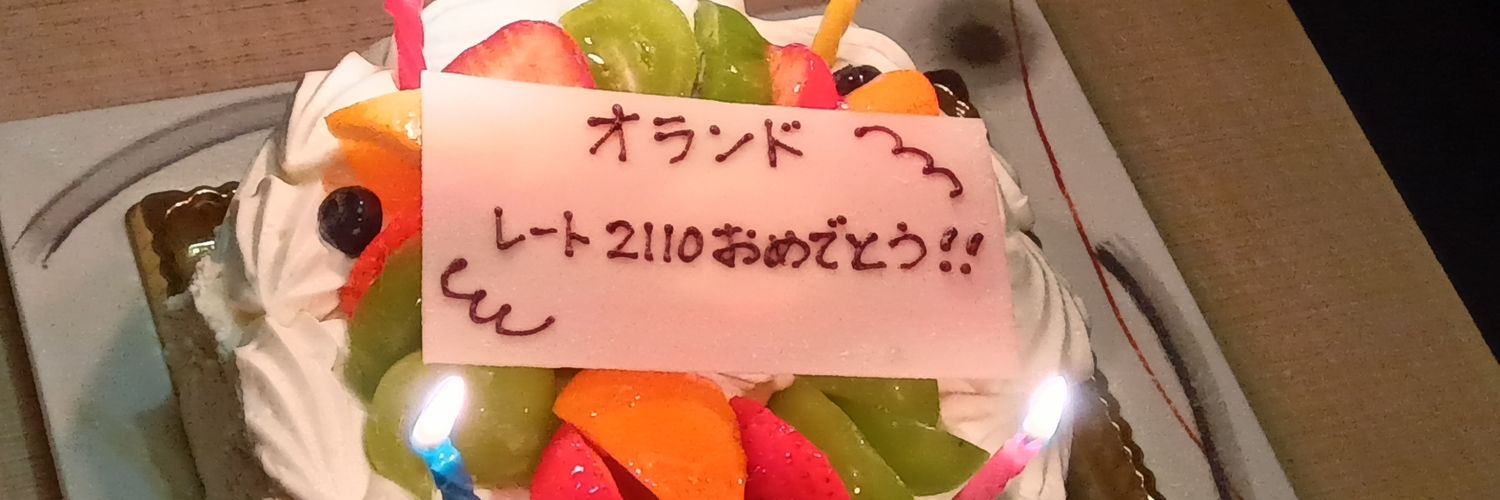 オランド
レート2110おめでとう!!